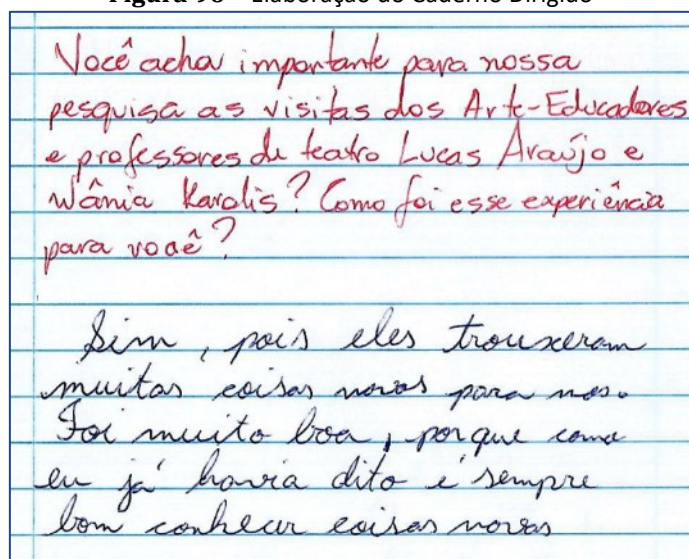 Figura 98 – Elaboração do Caderno Dirigido
Você acha importante para nossa
pesquisa as visitas dos Arte-Educadores
e professores de teatro Lucas Araújo e
Wânia Karolis? Como foi esse experiência
para você?
Sim, pois eles trouxeram
muitas coisas novas para nos.
Foi muito boa, porque como
eu já havia dito é sempre
bom conhecer coisas novas